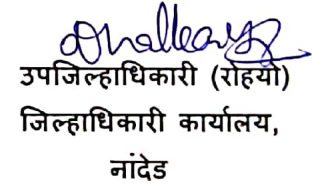 उपजिल्हाधिकारी (रोहयो)
जिल्हाधिकारी कार्यालय,
नांदेड